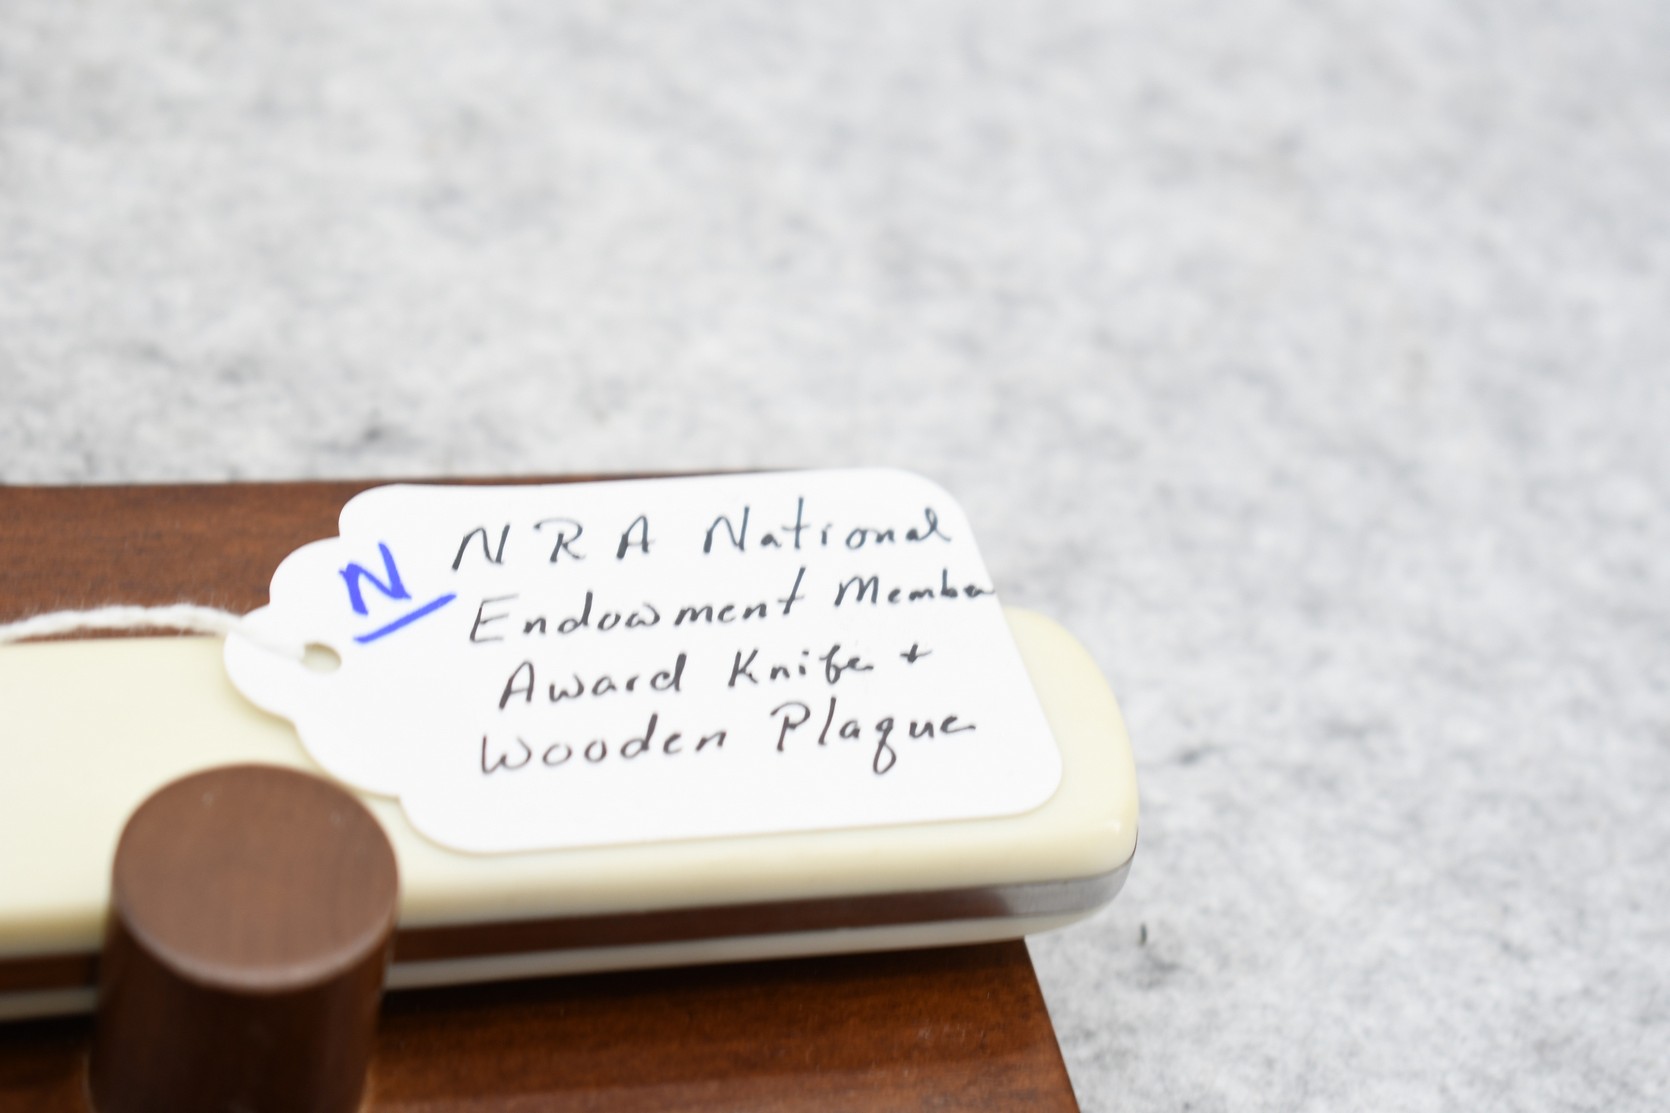 N
NRA National
Endowment Member
Award Knife +
Wooden Plaque